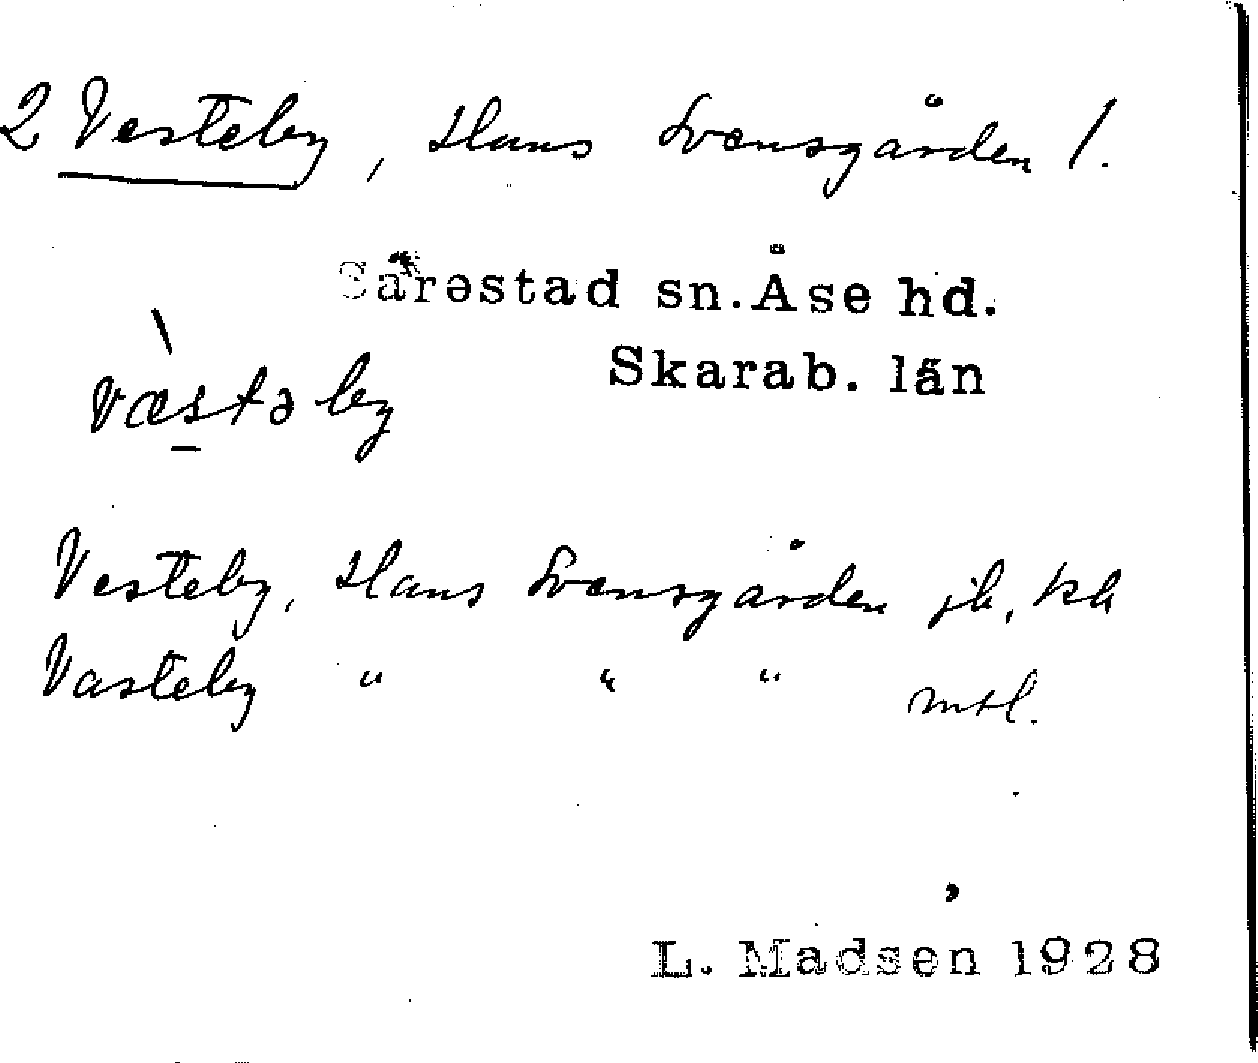 2 Vesteby, Hans Svensgården 1.
Särestad sn. Åse hd.
Skarab. län
væstəby
Vesteby, Hans Svensgården jb, kk
Vasteby " " " mtl.
L. Madsen 1928